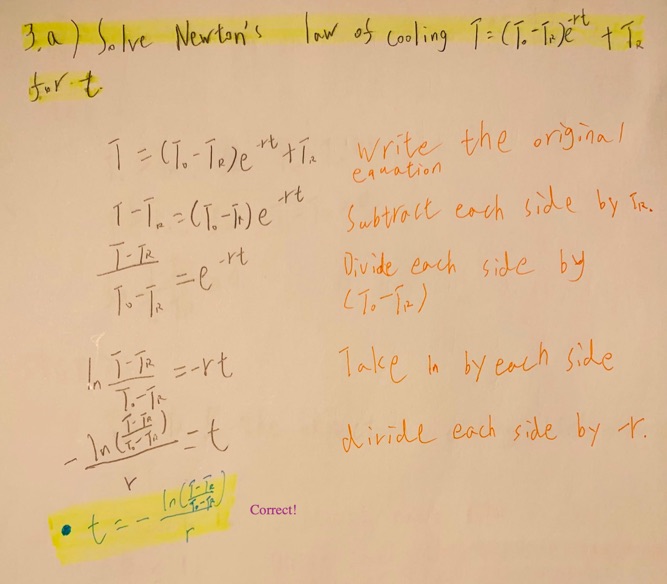 3.a) Solve Newton's law of cooling T=(T₀-T_R)e^-rt + T_R
for t.
T=(T₀-T_R)e^-rt+T_R Write the original
equation
T-T_R=(T₀-T_R)e^-rt Subtract each side by T_R.
(T-T_R)/(T₀-T_R)=e^-rt Divide each side by
(T₀-T_R)
ln (T-T_R)/(T₀-T_R) =-rt Take ln by each side
-ln((T-T_R)/(T₀-T_R))/r=t divide each side by -r.
• t=-ln((T-T_R)/(T₀-T_R))/r Correct!